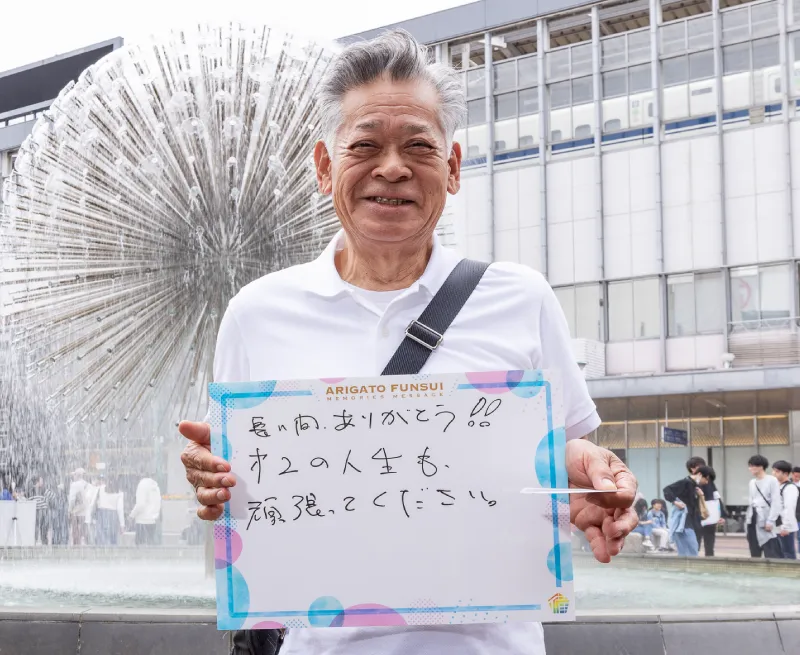 ARIGATO FUNSUI
MEMORIES MESSAGE
長い間、ありがとう!!
才2の人生も、
頑張ってください。